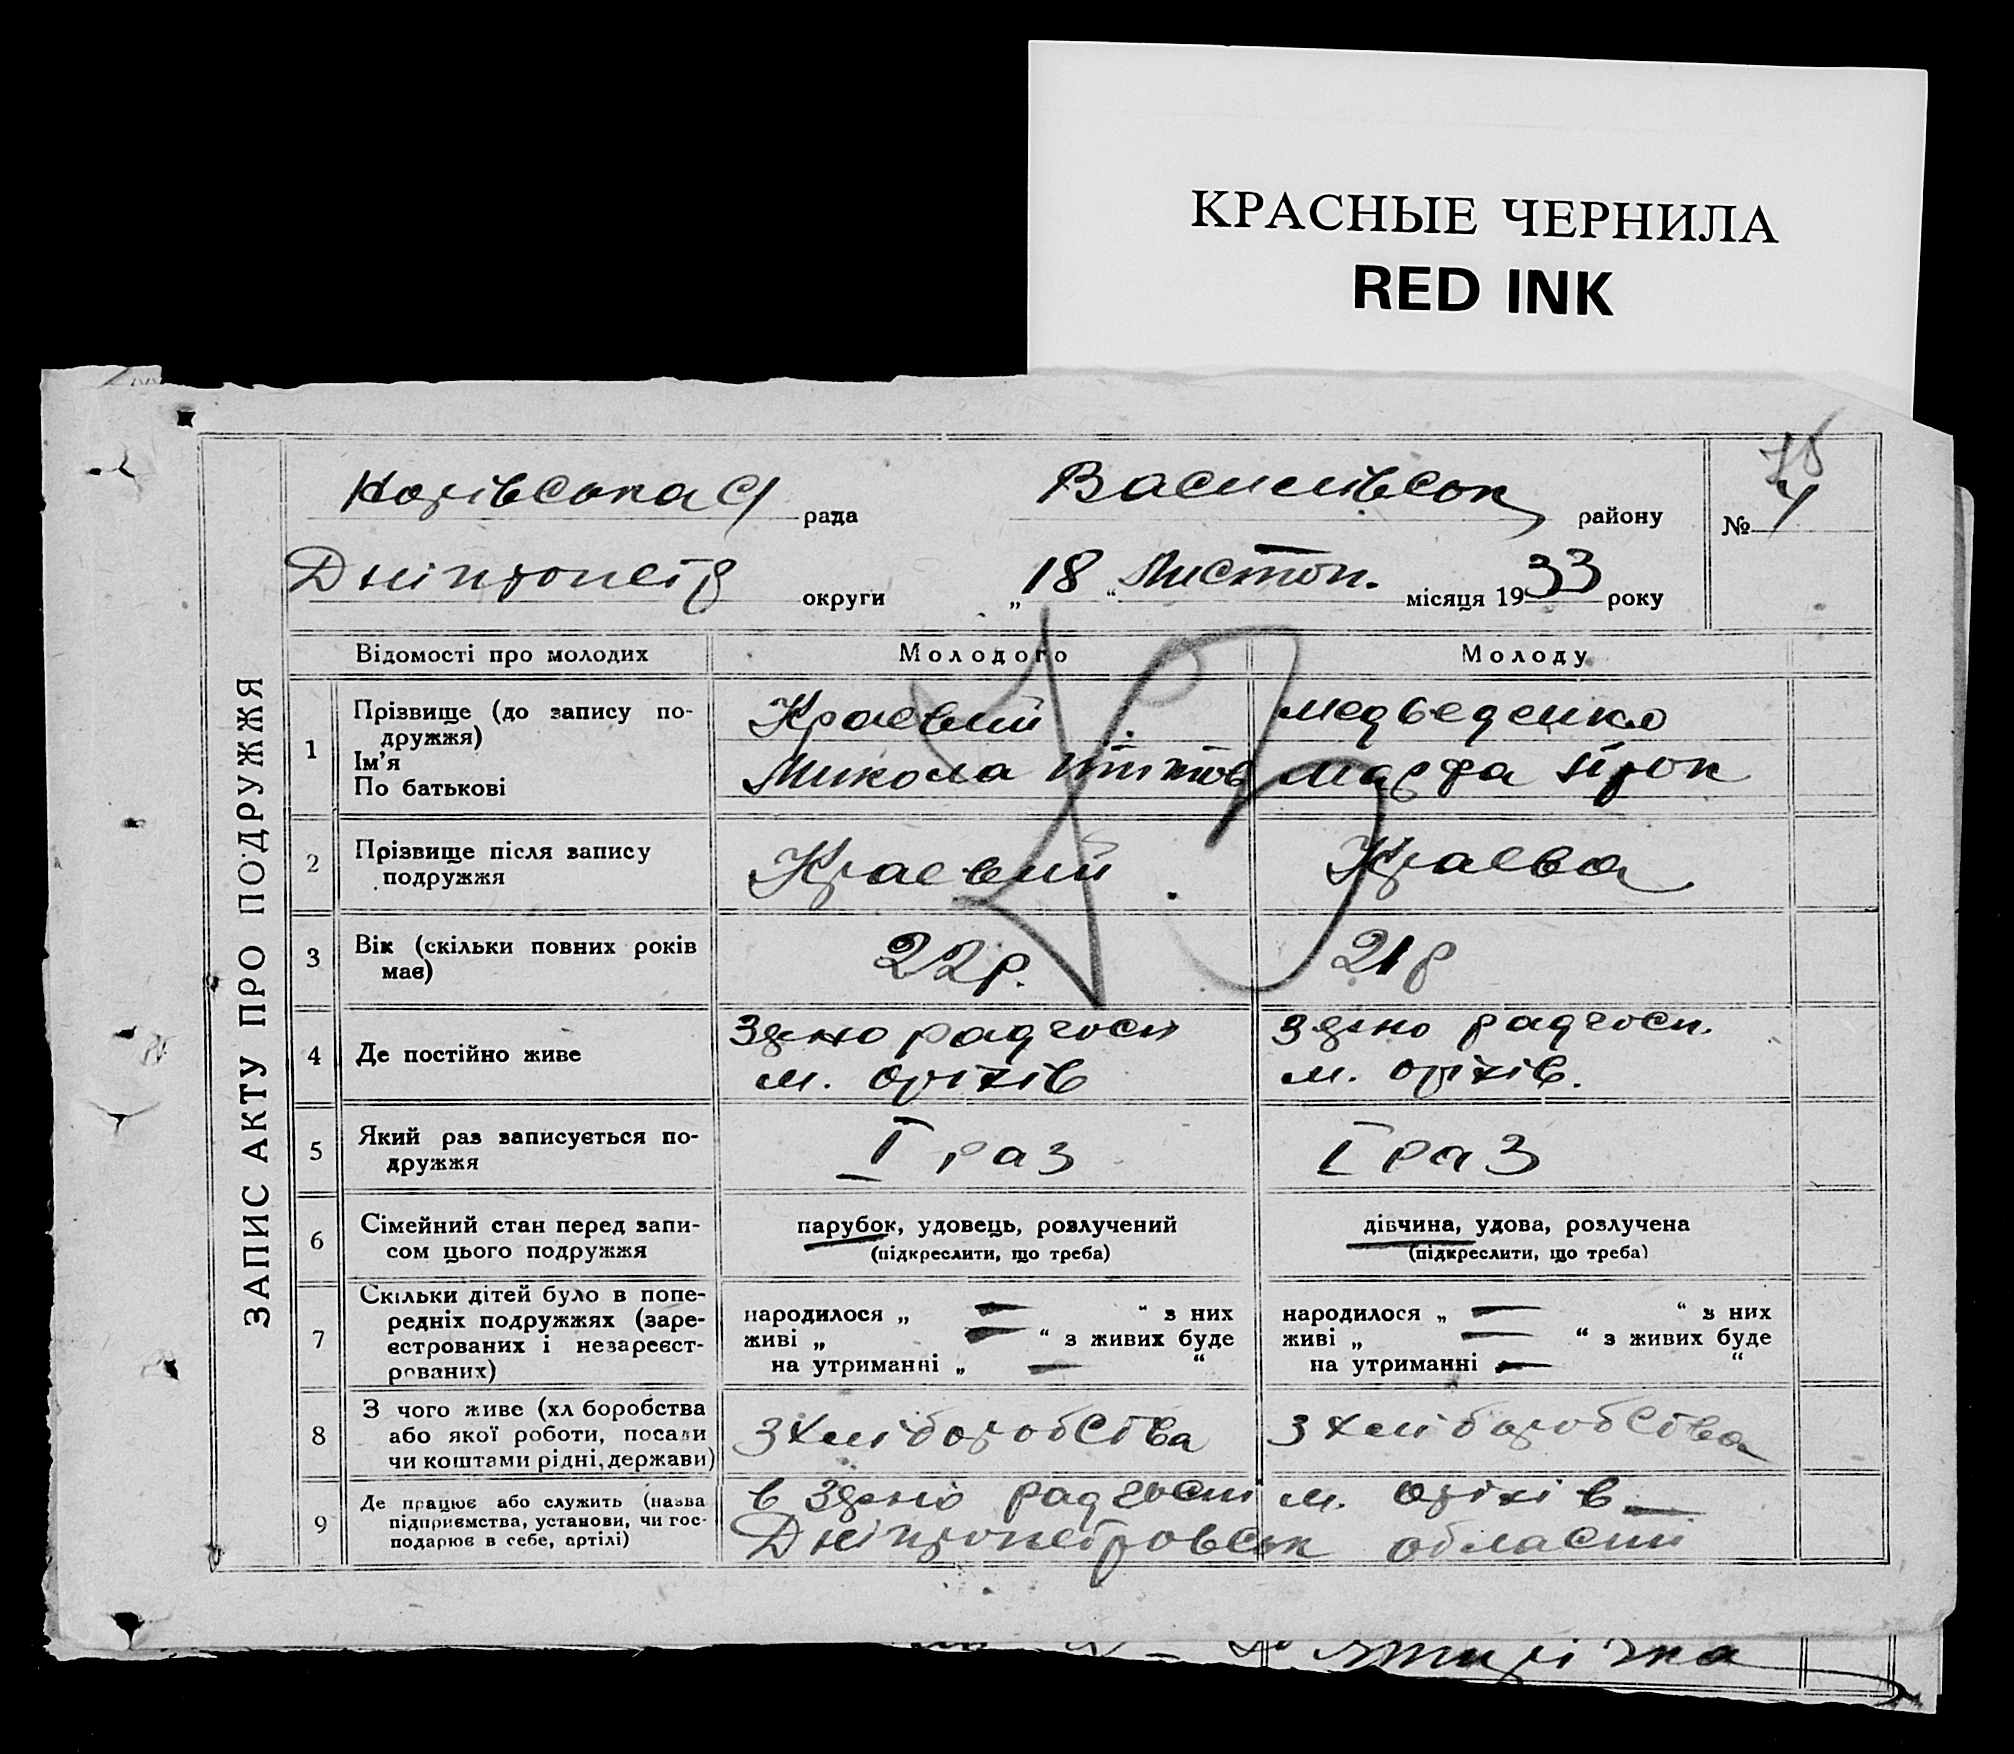 КРАСНЫЕ ЧЕРНИЛА
RED INK
ЗАПИС АКТУ ПРО ПОДРУЖЖЯ
рада Василівськ району №
Дніпропетр округи „18“ Листоп. місяця 1933 року
Відомості про молодих Молодого Молоду
1 Прізвище (до запису по-
дружжя)
Ім'я
По батькові
Краєвий Медведенко
Микола Марфа Прок
2 Прізвище після запису
подружжя
Краєвий Краєва
3 Вік (скільки повних років
має)
22р. 21р
4 Де постійно живе
Зерно радгосп Зерно радгосп.
м. Оріхів м. Оріхів.
5 Який раз записується по-
дружжя
I раз I раз
6 Сімейний стан перед запи-
сом цього подружжя
парубок, удовець, розлучений
(підкреслити, що треба)
дівчина, удова, розлучена
(підкреслити, що треба)
7 Скільки дітей було в попе-
редніх подружжях (заре-
єстрованих і незареєст-
рованих)
народилося „ — “ з них
живі „ — “ з живих буде
на утриманні „ — “
народилося „ — “ з них
живі „ — “ з живих буде
на утриманні — “
8 З чого живе (хл боробства
або якої роботи, посади
чи коштами рідні, держави)
З хліборобства З хліборобства
9 Де працює або служить (назва
підприємства, установи, чи гос-
подарює в себе, артілі)
в Зерно радгоспі м. Оріхів
Дніпропетровськ області